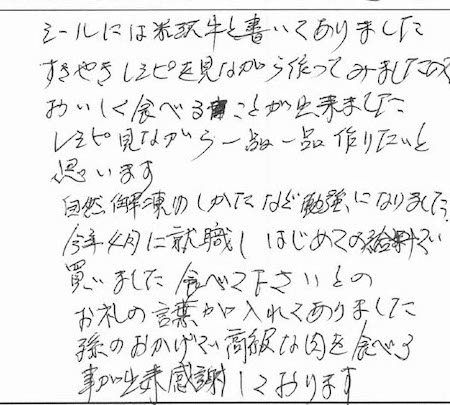 シールには米沢牛と書いてありました
すきやきレシピを見ながら作ってみましたので
おいしく食べることが出来ました
レシピ見ながら一品一品作りたいと
思います
自然解凍のしかたなど勉強になりました
今年4月に就職しはじめての給料で
買いました食べて下さいとの
お礼の言葉が入れてありました
孫のおかげで高級な肉を食べる
事が出来感謝しております